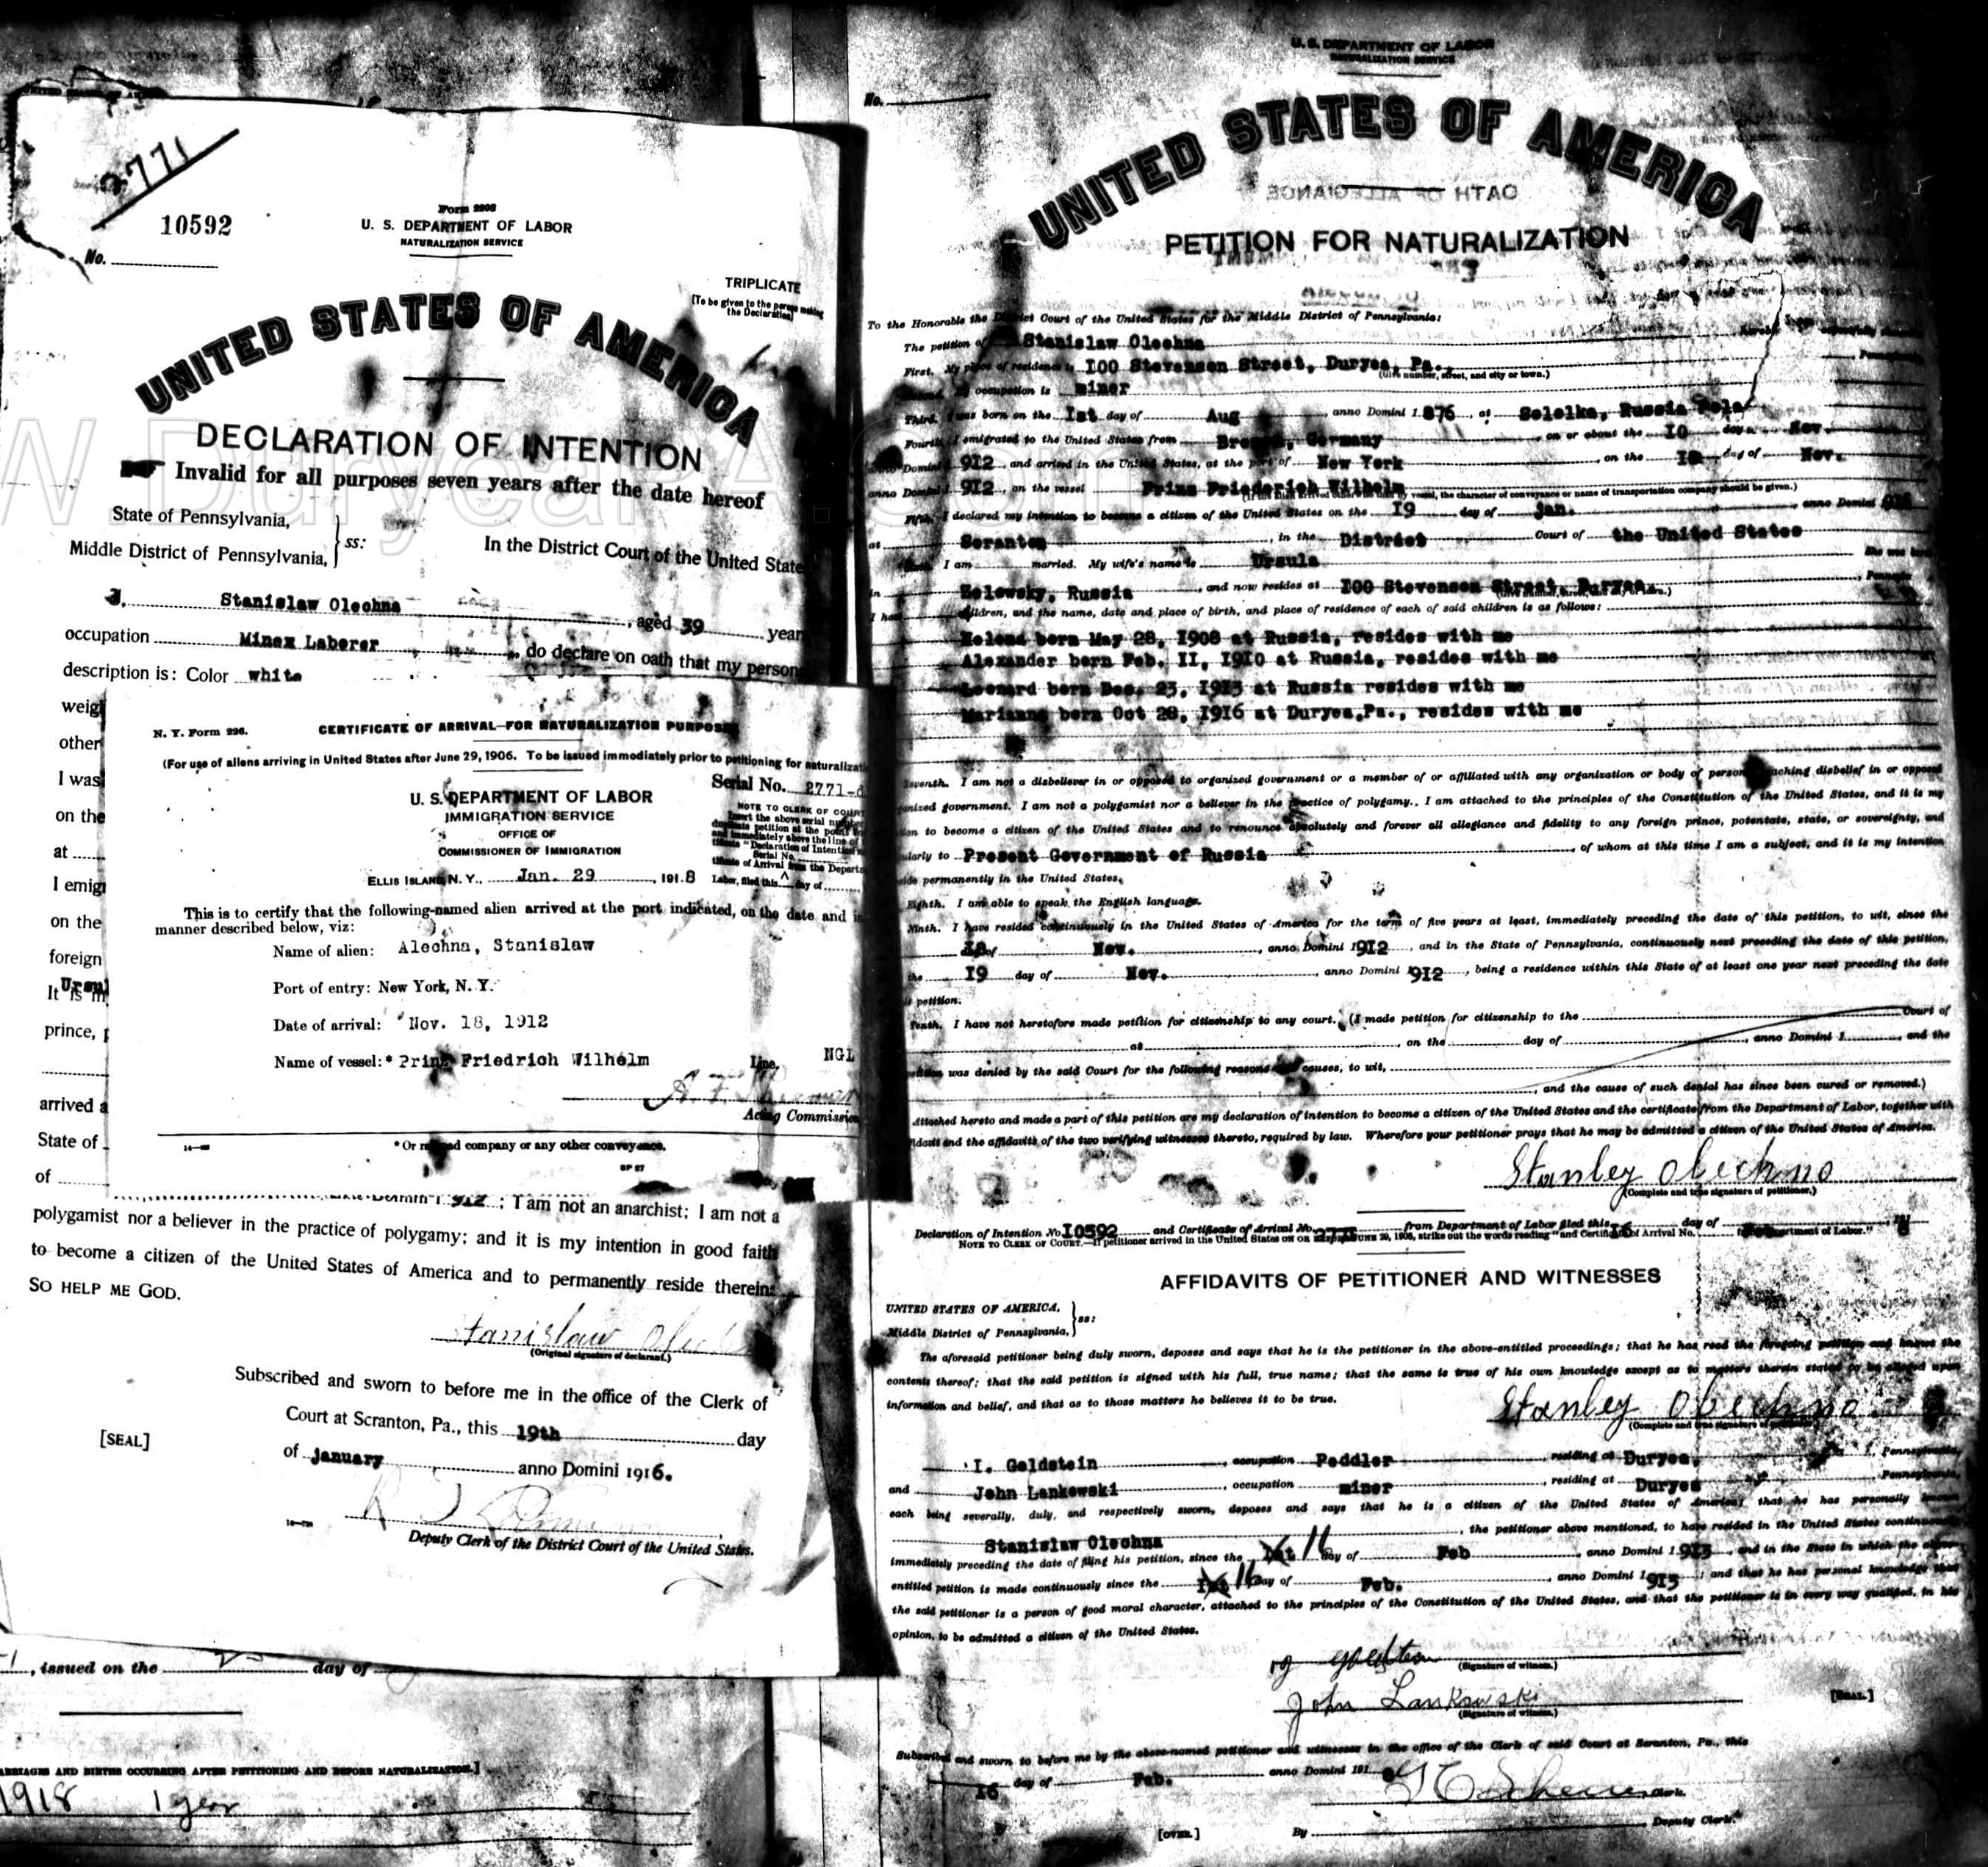 2771
10592
No.
Form 2203
U. S. DEPARTMENT OF LABOR
NATURALIZATION SERVICE
TRIPLICATE
[To be given to the person making
the Declaration]
UNITED STATES OF AMERICA
DECLARATION OF INTENTION
Invalid for all purposes seven years after the date hereof
State of Pennsylvania,
Middle District of Pennsylvania,
ss:
In the District Court of the United State
I, Stanislaw Olechna, aged 39 year
occupation Minex Laborer, do declare on oath that my person
description is: Color white
weig
other
I was
on the
at
I emig
on the
foreign
Ursul
It is m
prince, p
arrived a
State of
of
N. Y. Form 226.
CERTIFICATE OF ARRIVAL—FOR NATURALIZATION PURPOS
(For use of aliens arriving in United States after June 29, 1906. To be issued immediately prior to petitioning for naturalizati
Serial No. 2771-d
U. S. DEPARTMENT OF LABOR
IMMIGRATION SERVICE
OFFICE OF
COMMISSIONER OF IMMIGRATION
NOTE TO CLERK OF COURT
ELLIS ISLAND, N. Y., Jan. 29, 1918
Labor, filed this day of
This is to certify that the following-named alien arrived at the port indicated, on the date and in
manner described below, viz:
Name of alien: Alechna, Stanislaw
Port of entry: New York, N. Y.
Date of arrival: Nov. 18, 1912
Name of vessel:* Prinz Friedrich Wilhelm Line. NGL
Acting Commission
* Or railroad company or any other conveyance.
912; I am not an anarchist; I am not a
polygamist nor a believer in the practice of polygamy; and it is my intention in good faith
to become a citizen of the United States of America and to permanently reside therein:
SO HELP ME GOD.
Stanislaw Olech
(Original signature of declarant.)
Subscribed and sworn to before me in the office of the Clerk of
Court at Scranton, Pa., this 19th day
[SEAL]
of january anno Domini 1916.
Deputy Clerk of the District Court of the United States.
, issued on the day of
ARRIAGES AND BIRTHS OCCURRING AFTER PETITIONING AND BEFORE NATURALIZATION.]
1918 1 year
U. S. DEPARTMENT OF LABOR
NATURALIZATION SERVICE
No.
UNITED STATES OF AMERICA
OATH OF ALLEGIANCE
PETITION FOR NATURALIZATION
To the Honorable the District Court of the United States for the Middle District of Pennsylvania:
The petition of Stanislaw Olechna
First. My place of residence is 100 Stevenson Street, Duryea, Pa.
(Give number, street, and city or town.)
occupation is miner
Third. I was born on the 1st day of Aug, anno Domini 1 876, at Selelka, Russia Pola
Fourth. I emigrated to the United States from Bremen, Germany on or about the 10 day Nov.
anno Domini 912, and arrived in the United States, at the port of New York, on the 18 day of Nov.
anno Domini 912, on the vessel Prinz Friederich Wilhelm
Fifth. I declared my intention to become a citizen of the United States on the 19 day of jan. anno Domini 916
at Scranton, in the District Court of the United States
I am married. My wife's name is Ursula
in Zelowsky, Russia, and now resides at 100 Stevenson Street, Duryea.
I have children, and the name, date and place of birth, and place of residence of each of said children is as follows:
Helena born May 28, 1908 at Russia, resides with me
Alexander born Feb. II, 1910 at Russia, resides with me
Leonard born Dec. 23, 1913 at Russia resides with me
Marianna born Oct 28, 1916 at Duryea, Pa., resides with me
Seventh. I am not a disbeliever in or opposed to organized government or a member of or affiliated with any organization or body of persons teaching disbelief in or opposed
organized government. I am not a polygamist nor a believer in the practice of polygamy. I am attached to the principles of the Constitution of the United States, and it is my
tion to become a citizen of the United States and to renounce absolutely and forever all allegiance and fidelity to any foreign prince, potentate, state, or sovereignty, and
ularly to Present Government of Russia, of whom at this time I am a subject, and it is my intention
ide permanently in the United States.
Eighth. I am able to speak the English language.
Ninth. I have resided continuously in the United States of America for the term of five years at least, immediately preceding the date of this petition, to wit, since the
18 day of Nov., anno Domini 1912, and in the State of Pennsylvania, continuously next preceding the date of this petition,
the 19 day of Nov., anno Domini 1912, being a residence within this State of at least one year next preceding the date
is petition.
Tenth. I have not heretofore made petition for citizenship to any court. (I made petition for citizenship to the Court of
at, on the day of, anno Domini 1, and the
petition was denied by the said Court for the following reasons and causes, to wit,
and the cause of such denial has since been cured or removed.)
Attached hereto and made a part of this petition are my declaration of intention to become a citizen of the United States and the certificate from the Department of Labor, together with
idavit and the affidavits of the two verifying witnesses thereto, required by law. Wherefore your petitioner prays that he may be admitted a citizen of the United States of America.
Stanley Olechno
(Complete and true signature of petitioner.)
Declaration of Intention No. 10592 and Certificate of Arrival No. 2771 from Department of Labor filed this 16 day of
AFFIDAVITS OF PETITIONER AND WITNESSES
UNITED STATES OF AMERICA,
Middle District of Pennsylvania,
ss:
The aforesaid petitioner being duly sworn, deposes and says that he is the petitioner in the above-entitled proceedings; that he has read the foregoing petition and knows the
contents thereof; that the said petition is signed with his full, true name; that the same is true of his own knowledge except as to matters therein stated to be alleged upon
information and belief, and that as to those matters he believes it to be true.
Stanley Olechno
(Complete and true signature of petitioner.)
I. Goldstein, occupation Peddler, residing at Duryea, Pennsylvania,
and John Lankowski, occupation miner, residing at Duryea, Pennsylvania,
each being severally, duly, and respectively sworn, deposes and says that he is a citizen of the United States of America; that he has personally known
Stanislaw Olechna, the petitioner above mentioned, to have resided in the United States continuously
immediately preceding the date of filing his petition, since the 16 day of Feb, anno Domini 1 913, and in the State in which the above-
entitled petition is made continuously since the 16 day of Feb., anno Domini 1 913; and that he has personal knowledge that
the said petitioner is a person of good moral character, attached to the principles of the Constitution of the United States, and that the petitioner is in every way qualified, in his
opinion, to be admitted a citizen of the United States.
Goldstein
(Signature of witness.)
John Lankowski
(Signature of witness.)
[SEAL.]
Subscribed and sworn to before me by the above-named petitioner and witnesses in the office of the Clerk of said Court at Scranton, Pa., this
16 day of Feb. anno Domini 191 8
Clerk.
[OVER.]
By Deputy Clerk.